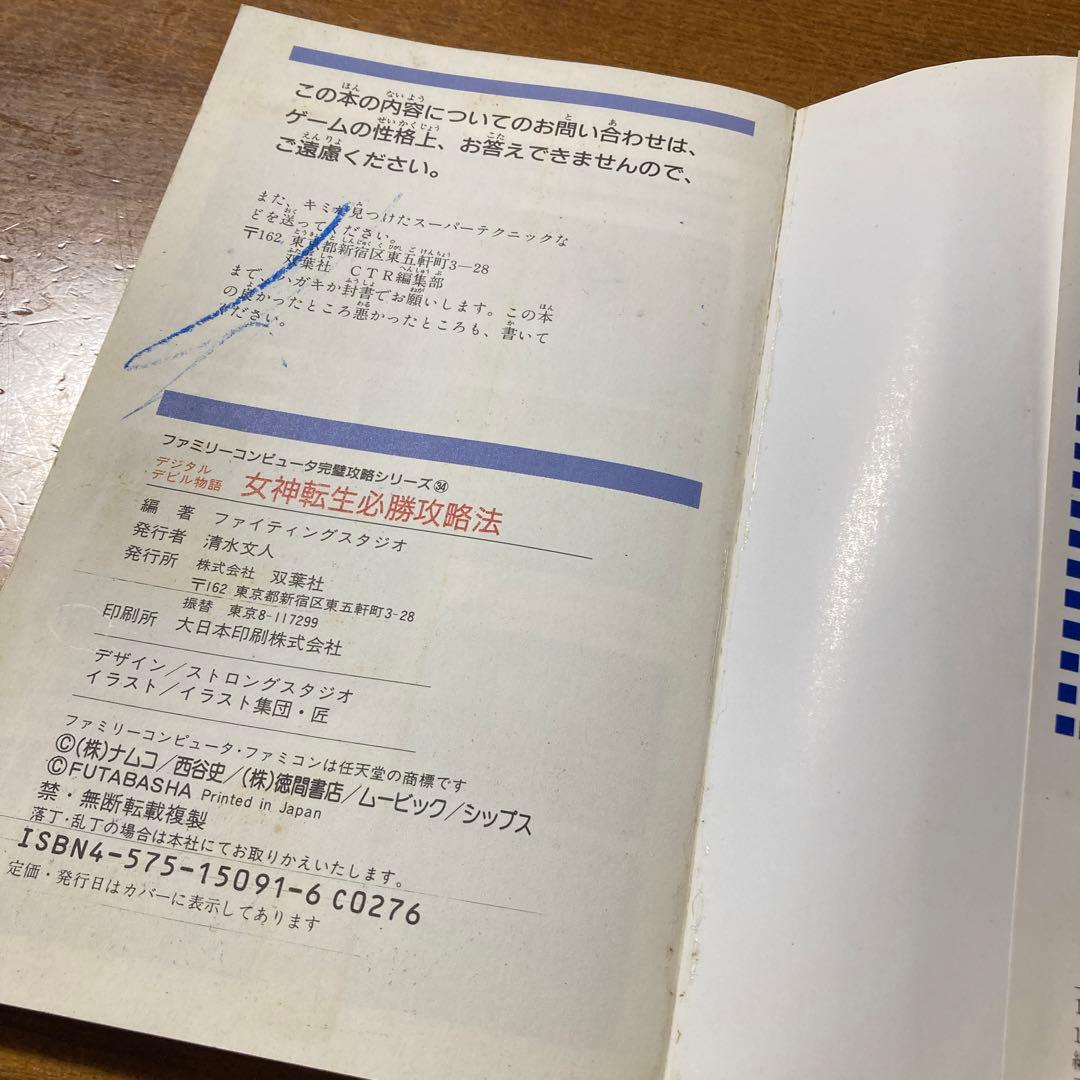 この本の内容についてのお問い合わせは、
ゲームの性格上、お答えできませんので、
ご遠慮ください。
また、キミが見つけたスーパーテクニックな
どを送ってください。
〒162 東京都新宿区東五軒町3—28
双葉社 CTR編集部
まで、ハガキか封書でお願いします。この本
の良かったところ悪かったところも、書いて
ください。
ファミリーコンピュータ完璧攻略シリーズ㉞
デジタル
デビル物語 女神転生必勝攻略法
編 著 ファイティングスタジオ
発行者 清水文人
発行所 株式会社 双葉社
〒162 東京都新宿区東五軒町3-28
振替 東京8-117299
印刷所 大日本印刷株式会社
デザイン/ストロングスタジオ
イラスト/イラスト集団・匠
ファミリーコンピュータ・ファミコンは任天堂の商標です
©(株)ナムコ/西谷史/(株)徳間書店/ムービック/シップス
©FUTABASHA Printed in Japan
禁・無断転載複製
落丁・乱丁の場合は本社にてお取りかえいたします。
ISBN4-575-15091-6 C0276
定価・発行日はカバーに表示してあります